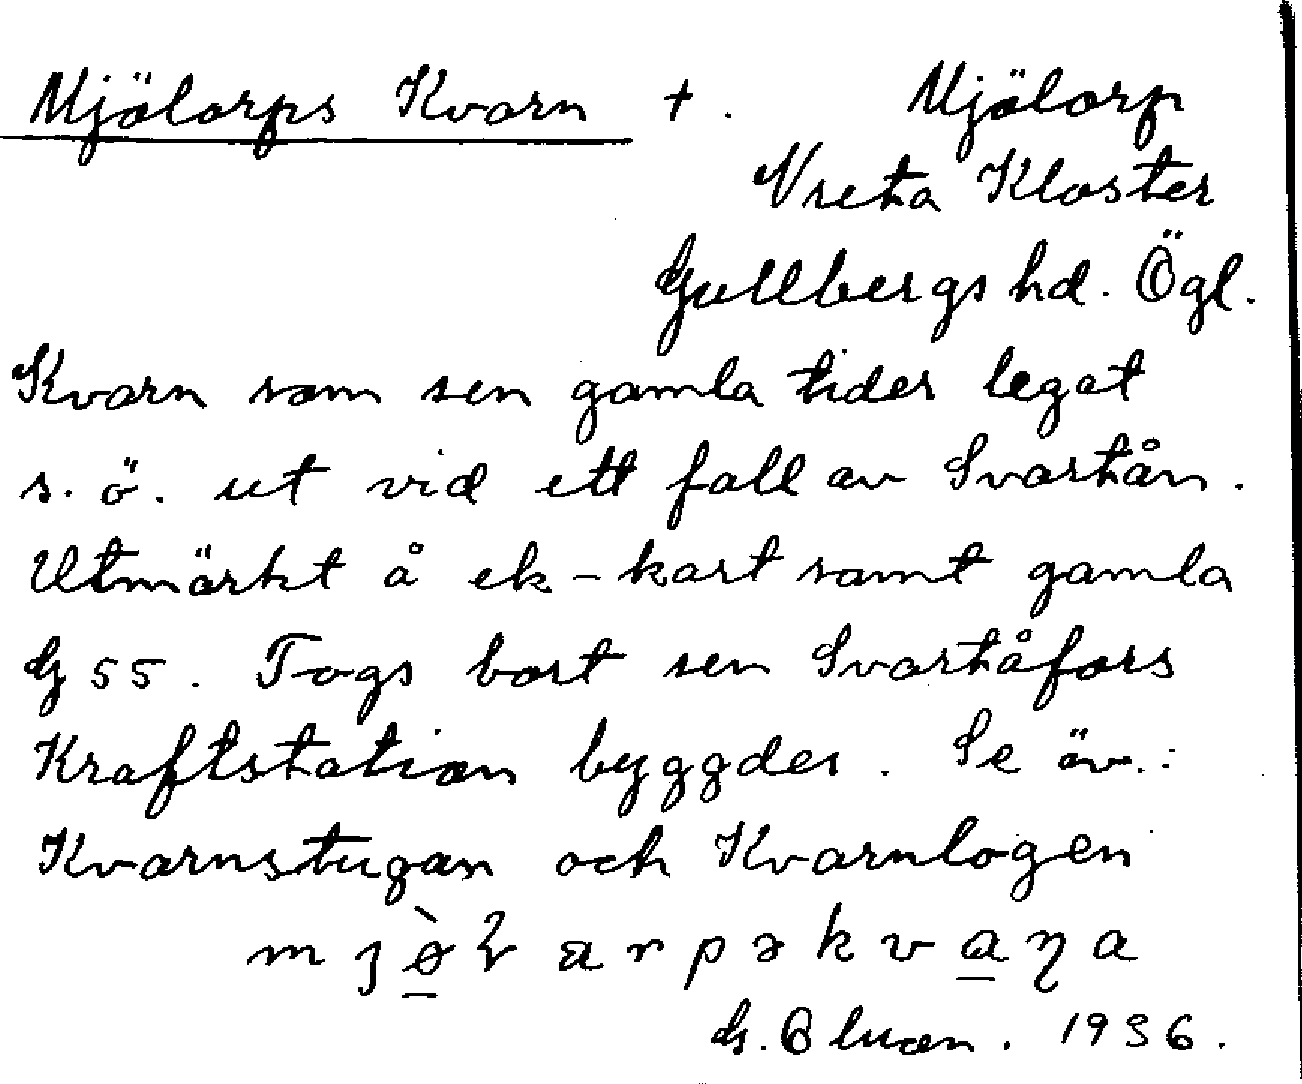 Mjölorps Kvarn +. Mjölorp
Vreta Kloster
Gullbergs hd. Ögl.
Kvarn som sen gamla tider legat
s. ö. ut vid ett fall av Svartån.
Utmärkt å ek-kart samt gamla
G 55. Togs bort sen Svartåfors
Kraftstation byggdes. Se äv.:
Kvarnstugan och Kvarnlogen
G. 1936.